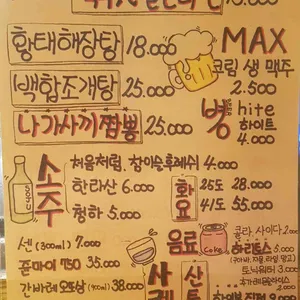 황태해장탕 18.000
MAX
크림 생 맥주
2.500
백합조개탕 25.000
병 hite
하이트
4.000
나가사끼짬뽕 25.000
소주
처음처럼. 참이슬후레쉬 4.000
한라산 6.000
청하 5.000
화요
25도 28.000
41도 55.000
음료
Coke
콜라. 사이다 2.000
센 (300ml) 7.000
쥰마이 750 35.000
간바레 오또상 (900ml) 38.000
하리토스 5.000
토닉워터 3.000
산토